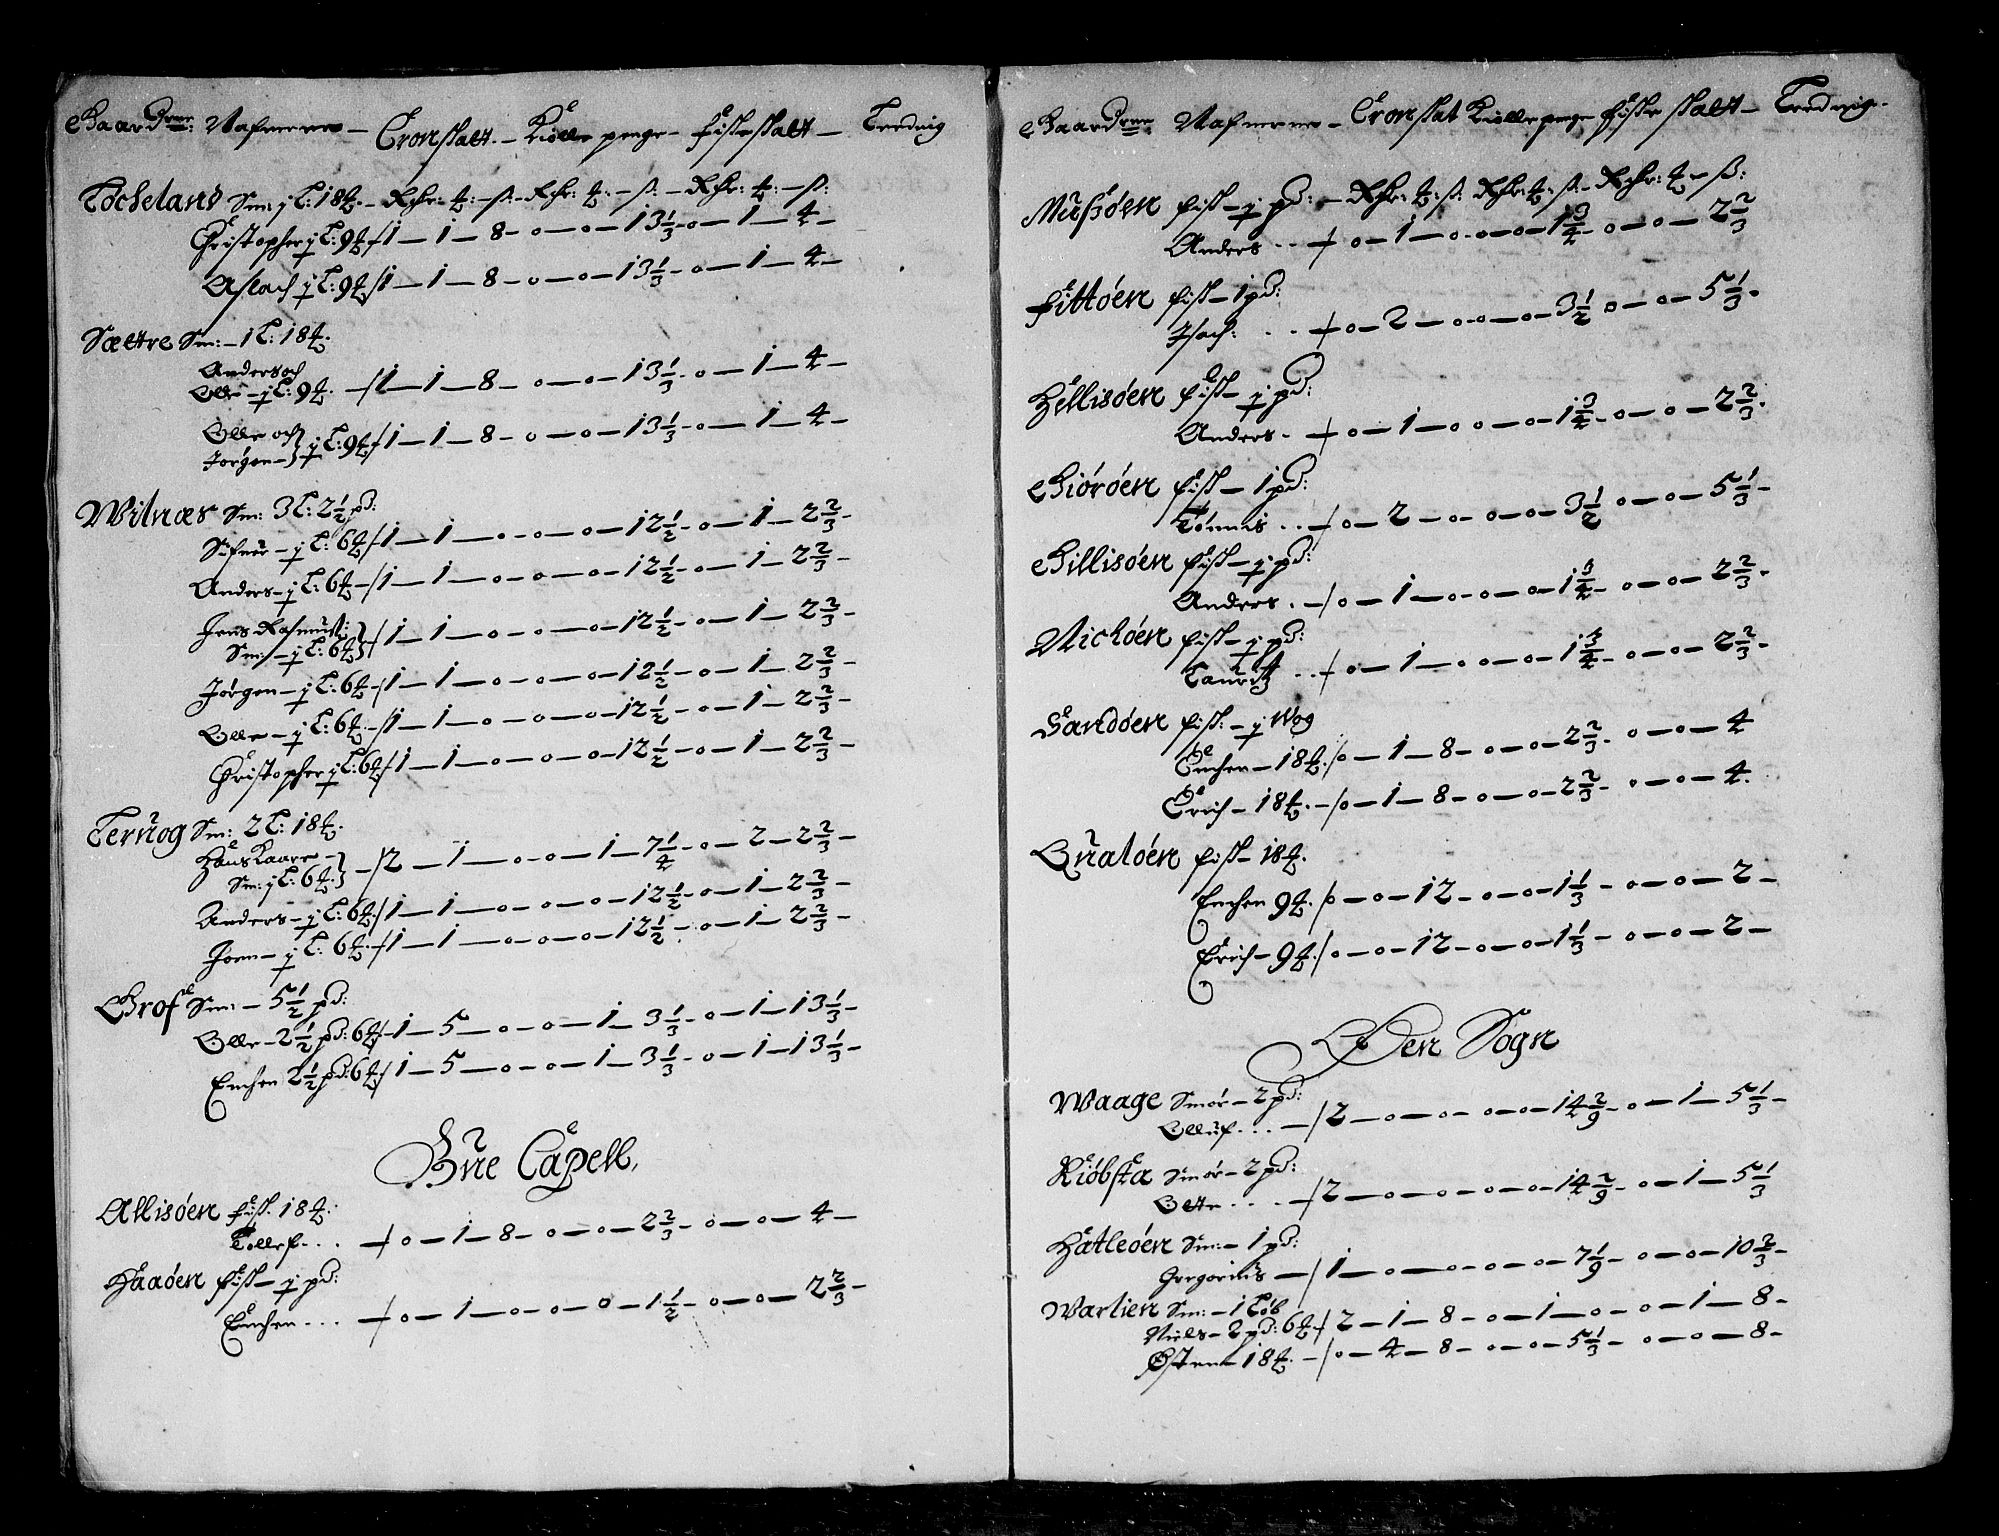 Gaardrne: Nafnene – Cronskatt – Kiølle penge – Fiske skatt – Trednig
Tocheland Sm: j L: 18 – Rdr: – ß – Rdr: – ß – Rdr: – ß:
Christopher j L: 9 – 1 – 1 – 8 – 0 – 0 – 13 1/3 – 0 – 1 – 4 –
Aslach j L: 9 – 1 – 1 – 8 – 0 – 0 – 13 1/3 – 0 – 1 – 4 –
Sættre Sm: – 1 L: 18
Anders och
Olle – j L: 9 – 1 – 1 – 8 – 0 – 0 – 13 1/3 – 0 – 1 – 4 –
Olle och
Jørgen – j L: 9 – 1 – 1 – 8 – 0 – 0 – 13 1/3 – 0 – 1 – 4 –
Wilnæs Sm: 3 L: 2 1/2 pd:
j L: 6 – 1 – 1 – 0 – 0 – 0 – 12 1/2 – 0 – 1 – 2 2/3 –
Anders – j L: 6 – 1 – 1 – 0 – 0 – 0 – 12 1/2 – 0 – 1 – 2 2/3 –
Jens Rasmusß:
Sm: – j L: 6 – 1 – 1 – 0 – 0 – 0 – 12 1/2 – 0 – 1 – 2 2/3 –
Jørgen – j L: 6 – 1 – 1 – 0 – 0 – 0 – 12 1/2 – 0 – 1 – 2 2/3 –
Olle – j L: 6 – 1 – 1 – 0 – 0 – 0 – 12 1/2 – 0 – 1 – 2 2/3 –
Christopher j L: 6 – 1 – 1 – 0 – 0 – 0 – 12 1/2 – 0 – 1 – 2 2/3 –
Ternog Sm: 2 L: 18
Hans Kaare –
Sm: j L: 6 – 2 – 1 – 0 – 0 – 1 – 7 1/4 – 0 – 2 – 2 2/3 –
Anders – j L: 6 – 1 – 1 – 0 – 0 – 0 – 12 1/2 – 0 – 1 – 2 2/3 –
Joen – j L: 6 – 1 – 1 – 0 – 0 – 0 – 12 1/2 – 0 – 1 – 2 2/3 –
Grof Sm: – 5 1/2 pd:
Olle – 2 1/2 pd: 6 – 1 – 5 – 0 – 0 – 1 – 3 1/3 – 0 – 1 – 13 1/3 –
Enchen 2 1/2 pd: 6 – 1 – 5 – 0 – 0 – 1 – 3 1/3 – 0 – 1 – 13 1/3 –
Bue Capell,
Allisøen Fisk 18
Tollef . . . – 0 – 1 – 8 – 0 – 0 – 2 2/3 – 0 – 0 – 4 –
Haaøen Fisk – j pd:
Enchen . . . – 0 – 1 – 0 – 0 – 0 – 1 1/2 – 0 – 0 – 2 2/3 –
Gaardrne Nafnene – Cronskat Kiølle penge Fiske skatt – Trednig –
Musøen Fisk – j pd: – Rdr: ß: Rdr: ß – Rdr: – ß:
Anders . . – 0 – 1 – 0 – 0 – 0 – 1 3/4 – 0 – 0 – 2 2/3
Fittøen Fisk – 1 pd:
Isach: . . – 0 – 2 – 0 – 0 – 0 – 3 1/2 – 0 – 0 – 5 1/3 –
Hellisøen Fisk – j pd:
Anders . – 0 – 1 – 0 – 0 – 0 – 1 3/4 – 0 – 0 – 2 2/3 .
Giørøen Fisk – 1 pd:
Tønnis . . – 0 – 2 – 0 – 0 – 0 – 3 1/2 – 0 – 0 – 5 1/3 –
Gillisøen Fisk – j pd:
Anders . – 0 – 1 – 0 – 0 – 0 – 1 3/4 – 0 – 0 – 2 2/3 –
Nichøen Fisk – j pd:
Lauritz . . – 0 – 1 – 0 – 0 – 0 – 1 3/4 – 0 – 0 – 2 2/3 –
Sandøen Fisk: – j Wog
Enchen – 18 – 0 – 1 – 8 – 0 – 0 – 2 2/3 – 0 – 0 – 4
Erich – 18 – 0 – 1 – 8 – 0 – 0 – 2 2/3 – 0 – 0 – 4.
Qualøen Fisk – 18
Enchen 9 – 0 – 0 – 12 – 0 – 0 – 1 1/3 – 0 – 0 – 2 –
Erich – 9 – 0 – 0 – 12 – 0 – 0 – 1 1/3 – 0 – 0 – 2 –
Øen Sogn
Waage Smør – 2 pd:
Olluf . . . – 2 – 0 – 0 – 0 – 0 – 14 2/9 – 0 – 1 – 5 1/3 –
Kiøbsta Smør – 2 pd:
. . . – 2 – 0 – 0 – 0 – 0 – 14 2/9 – 0 – 1 – 5 1/3
Hatleøen Sm: – 1 pd:
Gregorius – 1 – 0 – 0 – 0 – 0 – 7 1/9 – 0 – 0 – 10 2/3 –
Warlien Sm: – 1 Løb
Niels – 2 pd: 6 – 2 – 1 – 8 – 0 – 1 – 0 – 0 – 1 – 8 –
Østen – 18 – 0 – 4 – 8 – 0 – 0 – 5 1/3 – 0 – 0 – 8 –